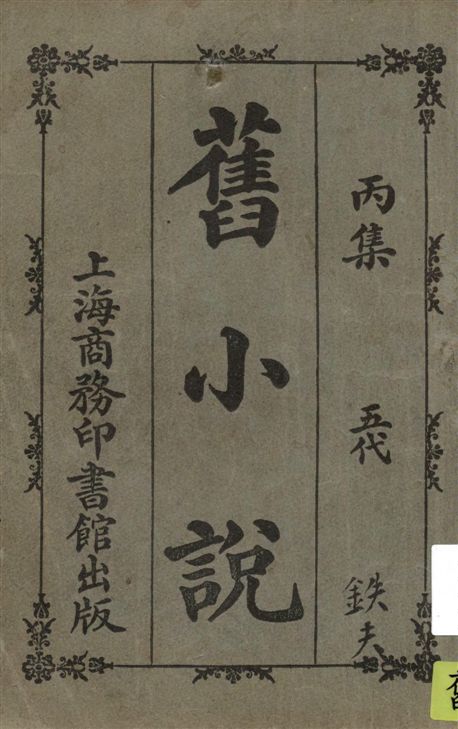 丙集 五代
鉄夫
舊小說
上海商務印書館出版
舊